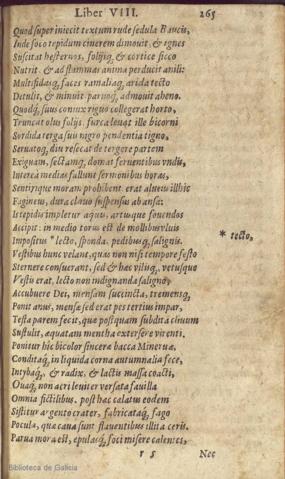 Liber VIII. 265
Quod super iniecit textum rude sedula Baucis,
Inde foco tepidum cinerem dimouit, & ignes
Suscitat hesternos, folijsq; & cortice sicco
Nutrit, & ad flammas anima perducit anili:
Multifidasq; faces ramaliaq; arida tecto
Detulit, & minuit paruoq; admouit abeno.
Quodq; suus coniux riguo collegerat horto,
Truncat olus folijs. furca leuat ille bicorni
Sordida terga suis nigro pendentia tigno,
Seruatoq; diu resecat de tergore partem
Exiguam, sectamq; domat feruentibus vndis,
Interea medias fallunt sermonibus horas,
Sentirique moram prohibent. erat alueus illhic
Fagineus, dura clauo suspensus ab ansa:
Is tepidis impletur aquis, artusque fouendos
Accipit. in medio torus est de mollibus vluis
Impositus * lecto, sponda, pedibusq; salignis. * tecto,
Vestibus hunc velant, quas non nisi tempore festo
Sternere consuerant, sed & hæc vilisq, vetusque
Vestis erat, lecto non indignanda saligno,
Accubuere Dei, mensam succincta, tremensq;
Ponit anus, mensæ sed erat pes tertius impar,
Testa parem fecit, quæ postquam subdita cliuum
Sustulit, æquatam mentha extersere virenti.
Ponitur hic bicolor sinceræ bacca Mineruæ,
Conditaq; in liquida corna autumnalia fece,
Intybaq; & radix, & lactis massa coacti,
Ouaq; non acri leuiter versata fauilla
Omnia fictilibus. post hæc calatus eodem
Sistitur argento crater, fabricataq; fago
Pocula, qua caua sunt flauentibus illita ceris.
Parua mora est, epulasq; foci misere calentes,
r 5 Nec
Biblioteca de Galicia